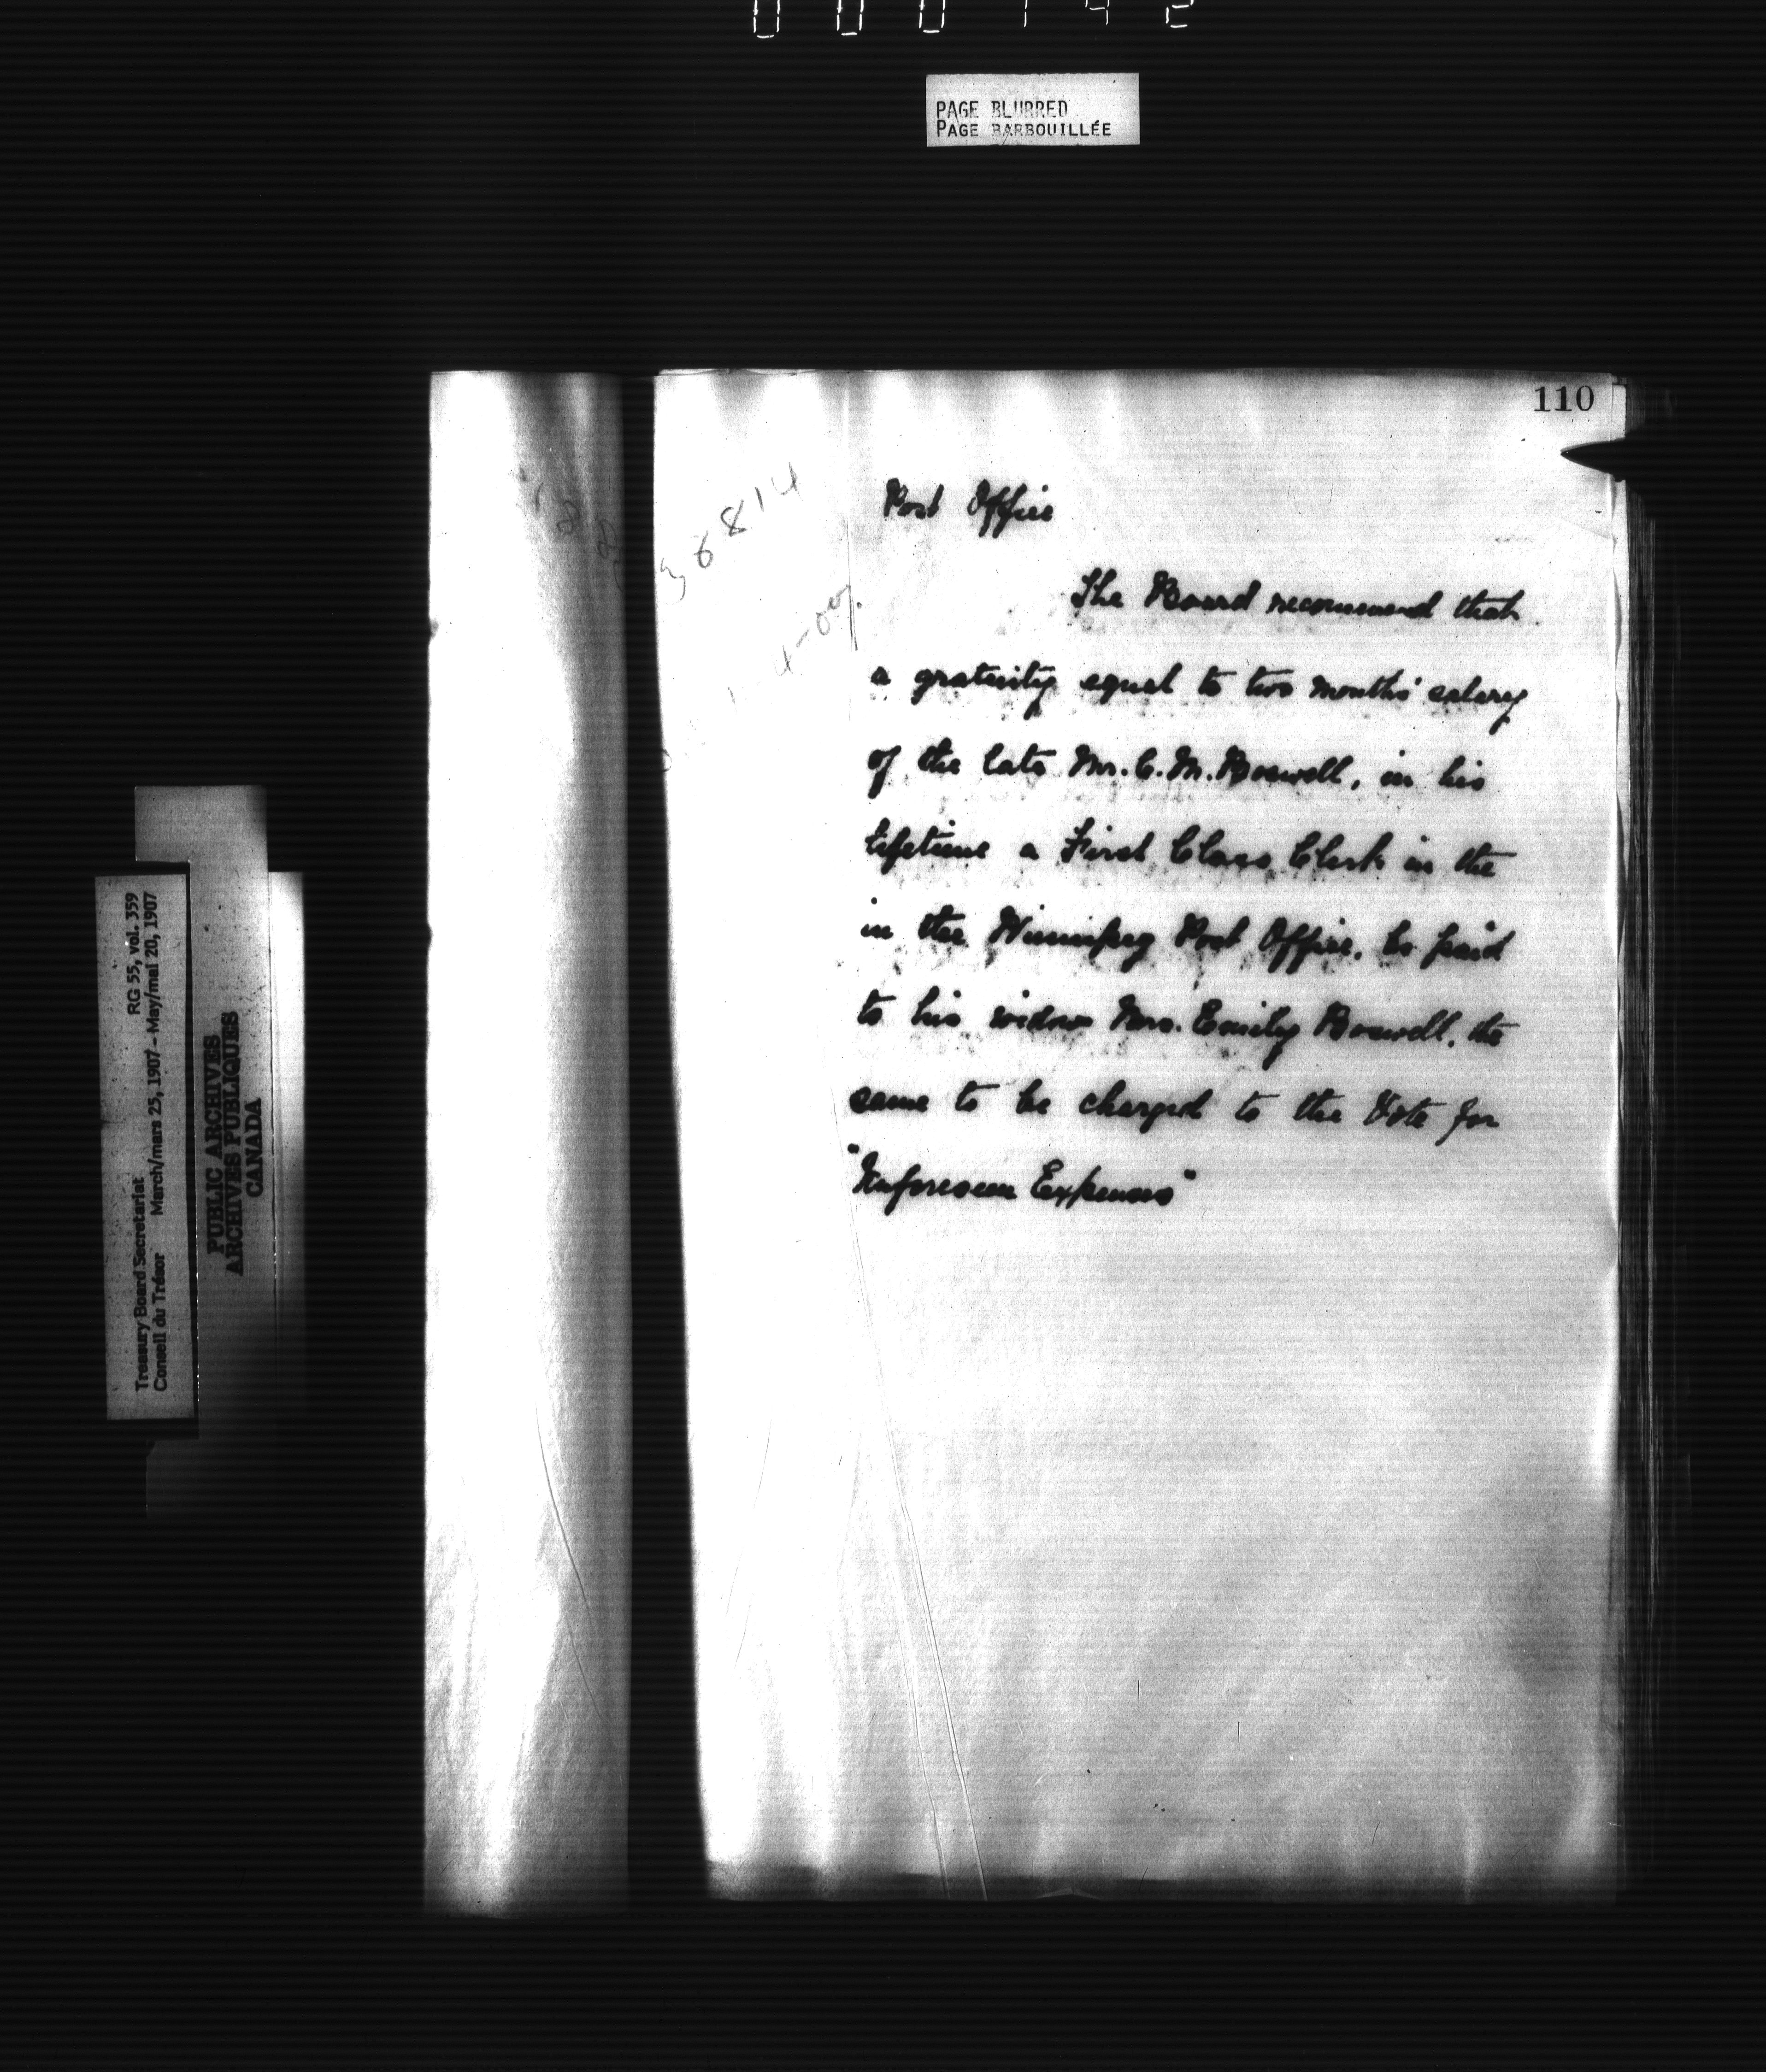 000142
PAGE BLURRED
PAGE BARBOUILLÉE
110
38814
Post Office
The Board recommend that
a gratuity equal to two months' salary
of the late Mr. C. M. Boswell, in his
lifetime a First Class Clerk in the
in the Winnipeg Post Office, be paid
to his widow Mrs. Emily Boswell, the
same to be charged to the Vote for
"Unforeseen Expenses"
Treasury Board Secretariat RG 55, vol. 359
Conseil du Trésor March/mars 25, 1907 - May/mai 20, 1907
PUBLIC ARCHIVES
ARCHIVES PUBLIQUES
CANADA